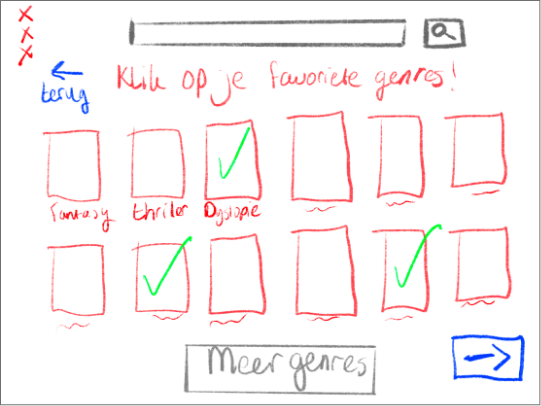 Klik op je favoriete genres!
terug
Fantasy thriller Dystopie
Meer genres